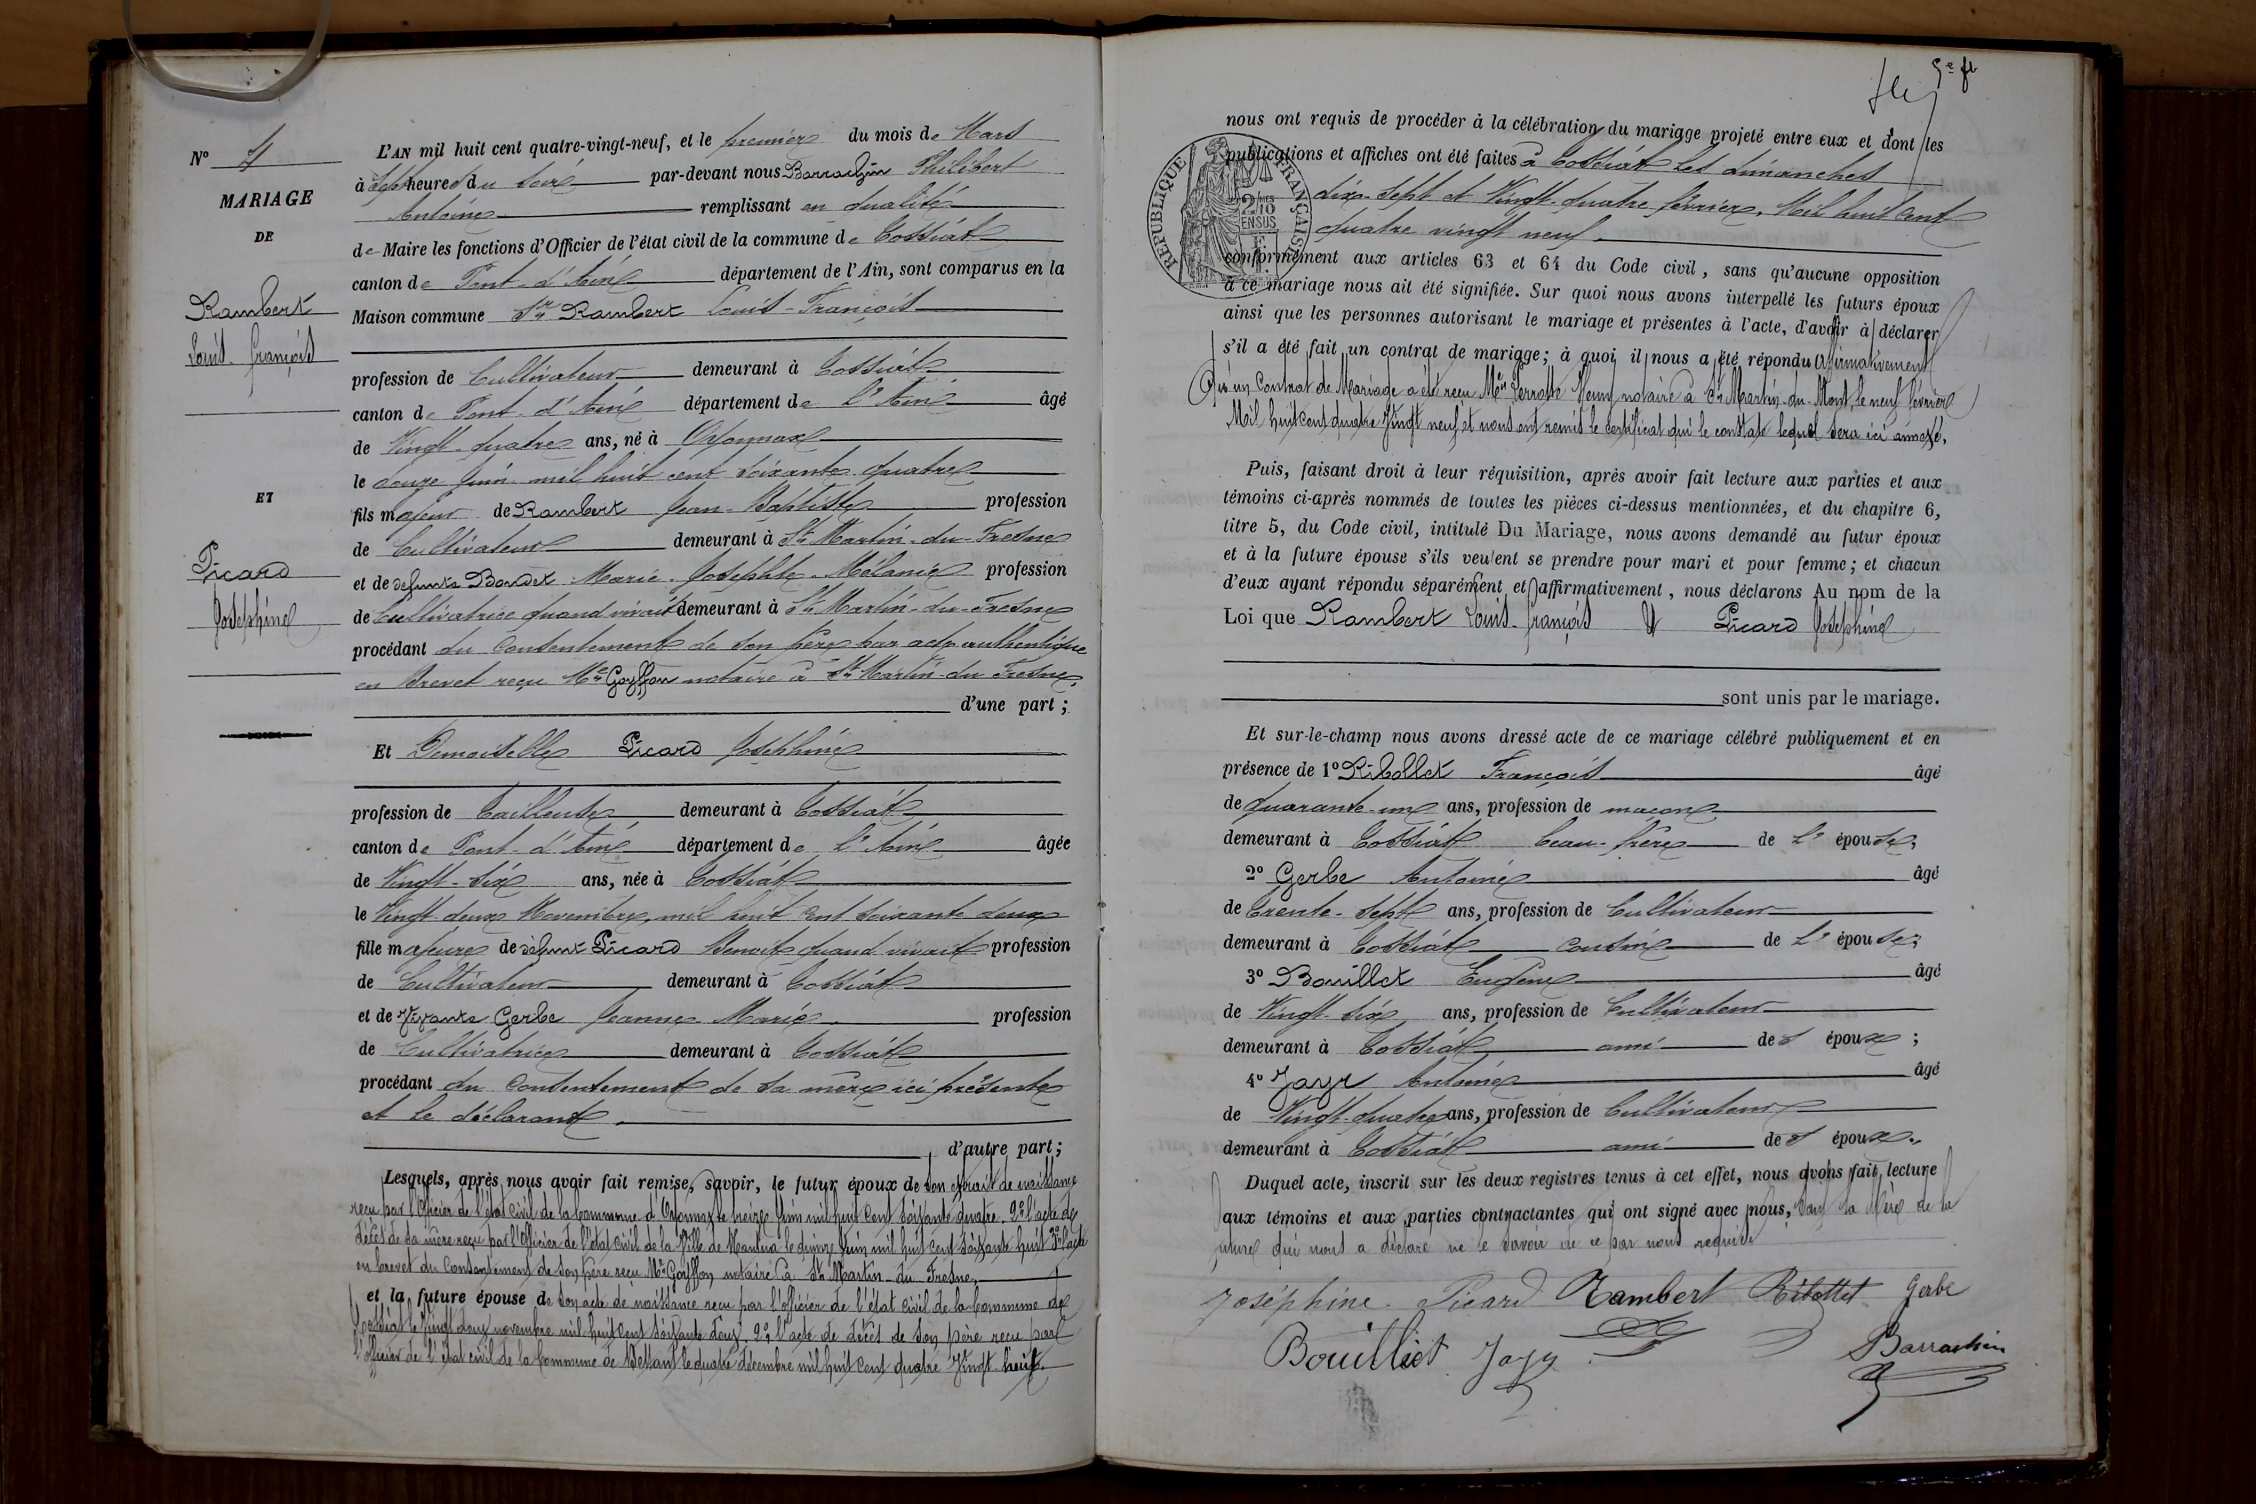 N° 4
MARIAGE
DE
Rambert
Louis-françois
ET
Picard
Joséphine
L'AN mil huit cent quatre-vingt-neuf, et le premier du mois de Mars
à sept heures du soir par-devant nous Barrachin Philibert
Antoine remplissant en qualité
de Maire les fonctions d'Officier de l'état civil de la commune de Tossiat
canton de Pont-d'Ain département de l'Ain, sont comparus en la
Maison commune Sr Rambert Louis-François
profession de Cultivateur demeurant à Tossiat
canton de Pont-d'Ain département de l'Ain âgé
de Vingt-quatre ans, né à Oyonnax
le douze Juin mil huit cent soixante-quatre
fils majeur de Rambert Jean-Baptiste profession
de Cultivateur demeurant à St Martin-du-Fresne
et de défunte Bondet Marie-Josephte-Mélanie profession
de Cultivatrice quand vivait demeurant à St Martin-du-Fresne
procédant du Consentement de son père par acte authentique
en Brevet reçu Me Goyffon notaire à St Martin-du Fresne,
d'une part ;
Et Demoiselle Picard Joséphine
profession de Tailleuse demeurant à Tossiat
canton de Pont-d'Ain département de l'Ain âgée
de Vingt-six ans, née à Tossiat
le Vingt-deux Novembre, mil huit cent soixante deux
fille majeure de défunt Picard Benoit quand vivait profession
de Cultivateur demeurant à Tossiat
et de Vivante Gerbe Jeanne Marie profession
de Cultivatrice demeurant à Tossiat
procédant du Consentement de sa mère ici présente
et le déclarant.
d'autre part ;
Lesquels, après nous avoir fait remise, savoir, le futur époux de son extrait de naissance
reçu par l'Officier de l'état civil de la Commune d'Oyonnax le treize Juin mil huit cent soixante quatre. 2° l'acte de
décès de sa mère reçu par l'Officier de l'état civil de la Ville de Nantua le quinze Juin mil huit cent soixante huit 3° l'acte
en brevet du Consentement de son père reçu Me Goyffon notaire à St Martin-du Fresne,
et la future épouse de son acte de naissance reçu par l'officier de l'état civil de la Commune de
Tossiat le Vingt deux novembre mil huit cent soixante deux. 2° l'acte de décès de son père reçu par
l'officier de l'état civil de la Commune de le quatre décembre mil huit cent quatre Vingt-huit.
5e
nous ont requis de procéder à la célébration du mariage projeté entre eux et dont les
publications et affiches ont été faites à Tossiat les dimanches
dix-sept et Vingt-quatre février, Mil huit Cent
quatre vingt neuf.
RÉPUBLIQUE FRANÇAISE
2/10 EN SUS
conformément aux articles 63 et 64 du Code civil, sans qu'aucune opposition
à ce mariage nous ait été signifiée. Sur quoi nous avons interpellé les futurs époux
ainsi que les personnes autorisant le mariage et présentes à l'acte, d'avoir à déclarer
s'il a été fait un contrat de mariage; à quoi il nous a été répondu affirmativement
Qu'un Contrat de Mariage a été reçu Me Perrotte Henry notaire à St Martin-du-Mont, le neuf février
Mil huit cent quatre Vingt neuf et nous ont remis le certificat qui le constate lequel sera ici annexé.
Puis, faisant droit à leur réquisition, après avoir fait lecture aux parties et aux
témoins ci-après nommés de toutes les pièces ci-dessus mentionnées, et du chapitre 6,
titre 5, du Code civil, intitulé Du Mariage, nous avons demandé au futur époux
et à la future épouse s'ils veulent se prendre pour mari et pour femme; et chacun
d'eux ayant répondu séparément et affirmativement, nous déclarons Au nom de la
Loi que Rambert Louis-françois et Picard Joséphine
sont unis par le mariage.
Et sur-le-champ nous avons dressé acte de ce mariage célébré publiquement et en
présence de 1° Ribollet François âgé
de quarante-un ans, profession de maçon
demeurant à Tossiat beau-frère de l'épouse;
2° Gerbe Antoine âgé
de trente-sept ans, profession de Cultivateur
demeurant à Tossiat cousin de l'épouse;
3° Bouillet Eugène âgé
de Vingt-six ans, profession de Cultivateur
demeurant à Tossiat ami des époux ;
4° Jayr Antoine âgé
de Vingt-quatre ans, profession de Cultivateur
demeurant à Tossiat ami des époux.
Duquel acte, inscrit sur les deux registres tenus à cet effet, nous avons fait lecture
aux témoins et aux parties contractantes qui ont signé avec nous, sauf la Mère de la
future qui nous a déclaré ne le savoir de ce par nous requise
Joséphine Picard Rambert Ribollet Gerbe
Bouillet Jayr Barrachin